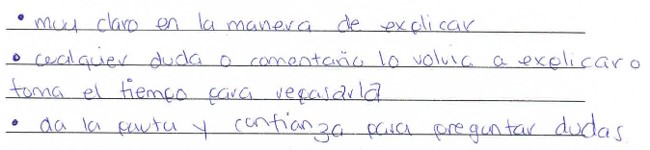 • muy claro en la manera de explicar
• cualquier duda o comentario lo volvia a explicar o
toma el tiempo para repasarla
• da la pauta y confianza para preguntar dudas